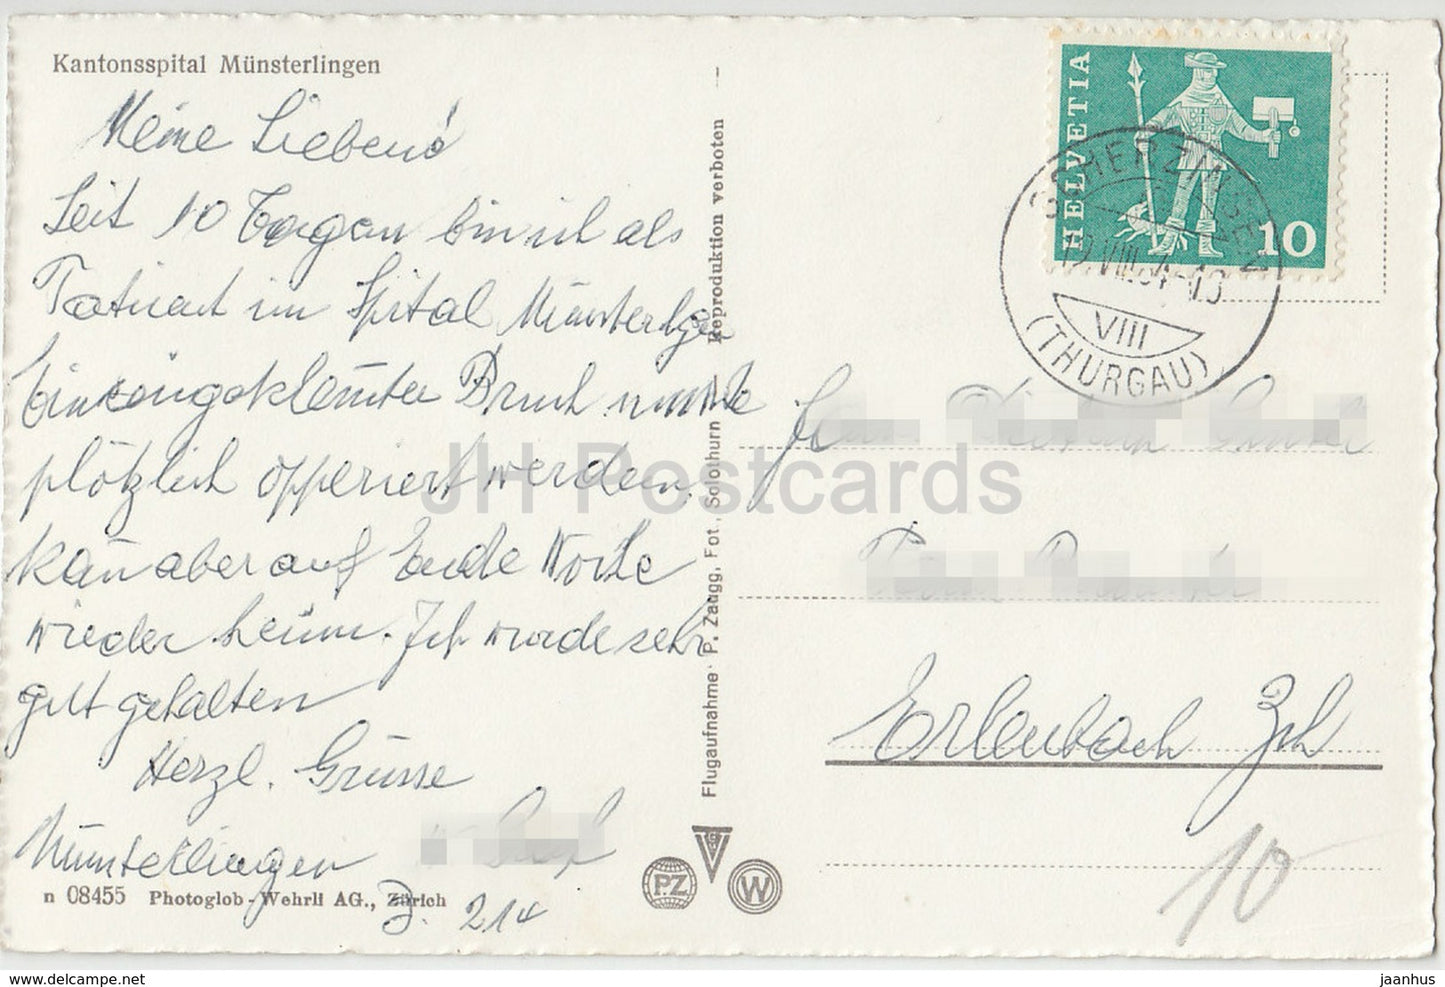 Kantonsspital Münsterlingen
Meine Lieben!
Seit 10 Tagen bin ich als
Patient im Spital Münsterlgen
Ein eingeklemter Bruch musste
plötzlich opperiert werden,
kan aber auf Ende Woche
wieder heim. Ich werde sehr
gut gehalten
Herzl. Grüsse
Münsterlingen
Z. 214
n 08455 Photoglob-Wehrli AG., Zürich
Flugaufnahme: P. Zaugg, Fot., Solothurn — Reproduktion verboten
PZ
VGS
W
HELVETIA
10
SCHERZINGEN
VIII
(THURGAU)
Erlenbach Zch
10
JH Postcards
www.delcampe.net
jaanhus